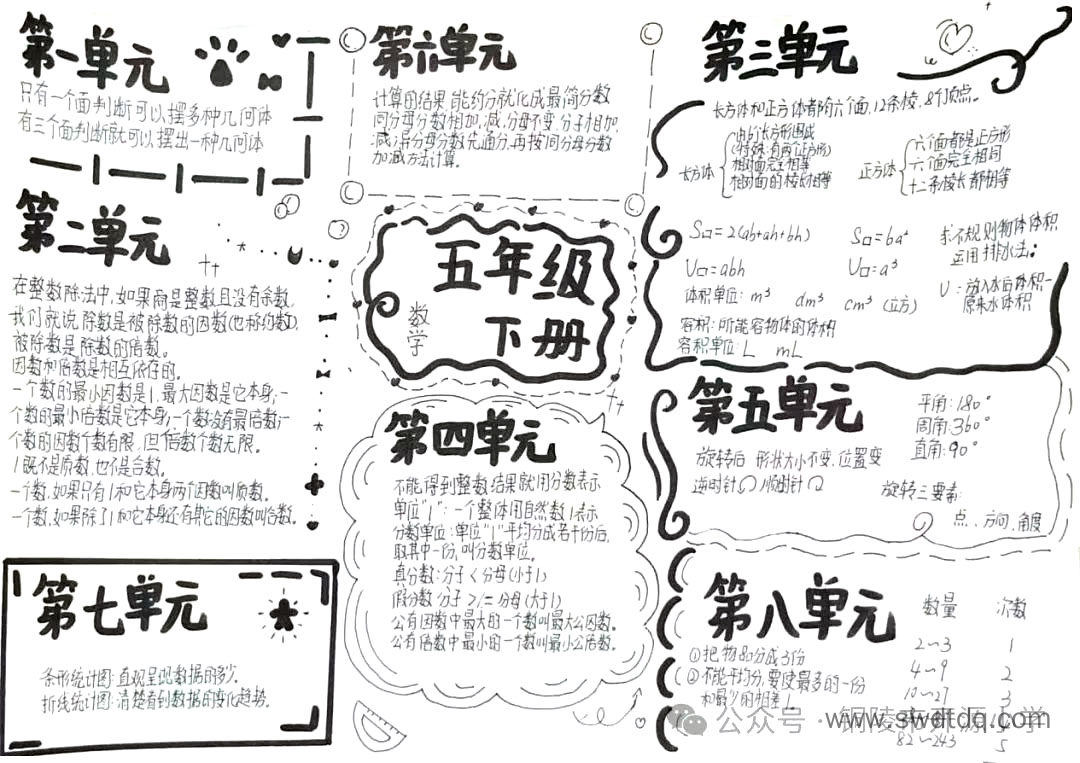 第一单元
只有一个面判断可以摆多种几何体
有三个面判断就可以摆出一种几何体
第六单元
计算的结果,能约分就化成最简分数
同分母分数相加,减,分母不变,分子相加,
减;异分母分数先通分,再按同分母分数
加减方法计算。
第三单元
长方体和正方体者都六个面,12条棱,8个顶点。
长方体
由6个长方形围成
(特殊:有两个正方形)
相对面完全相等
相对面的棱长相等
正方体
六个面都是正方形
六个面完全相同
十二条棱长都相等
S□=2(ab+ah+bh)
S□=6a²
U□=abh
U□=a³
求不规则物体体积
运用排水法:
U:放入水后体积-
原来水体积
体积单位:m³ dm³ cm³(立方)
容积:所能容物体的体积
容积单位:L mL
第二单元
在整数除法中,如果商是整数且没有余数,
我们就说除数是被除数的因数(也称约数),
被除数是除数的倍数。
因数和倍数是相互依存的。
一个数的最小因数是1,最大因数是它本身;一
个数的最小倍数是它本身;一个数没有最倍数;一
个数的因数个数有限,但倍数个数无限。
1既不是质数,也不是合数。
一个数,如果只有1和它本身两个因数叫质数。
一个数,如果除了1和它本身还有其它的因数叫合数。
五年级
数学
下册
第四单元
不能得到整数结果就用分数表示
单位"1":一个整体用自然数1表示
分数单位:单位"1"平均分成若干份后,
取其中一份,叫分数单位。
真分数:分子<分母(小于1)
假分数分子>/=分母(大于1)
公有因数中最大的一个数叫最大公因数。
公有倍数中最小的一个数叫最小公倍数。
第五单元
平角:180°
周角:360°
直角:90°
旋转后 形状大小不变,位置变
逆时针 顺时针
旋转三要素:
点、方向、角度
第七单元
条形统计图:直观呈现数据的多少。
折线统计图:清楚看到数据的变化趋势。
第八单元
①把物品分成3份
②不能平均分,要使最多的一份
和最少的相差1
数量 次数
2~3 1
4~9 2
10~27 3
82~243 5
公众号·铜陵市开源小学
www.swdtdq.com